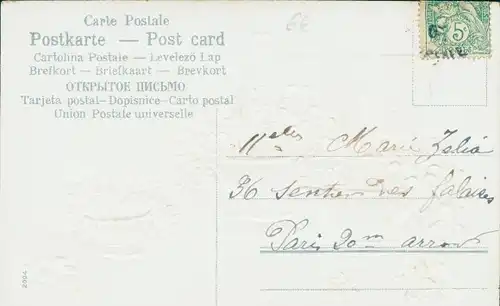 Carte Postale
Postkarte — Post card
Cartolina Postale — Levelező Lap
Brefkort — Briefkaart — Brevkort
ОТКРЫТОЕ ПИСЬМО
Tarjeta postal—Dopisnice—Carto postal
Union Postale universelle
5
Mlles Marie Zélia
36 sentier des falaises
Paris 20m arrond
2904